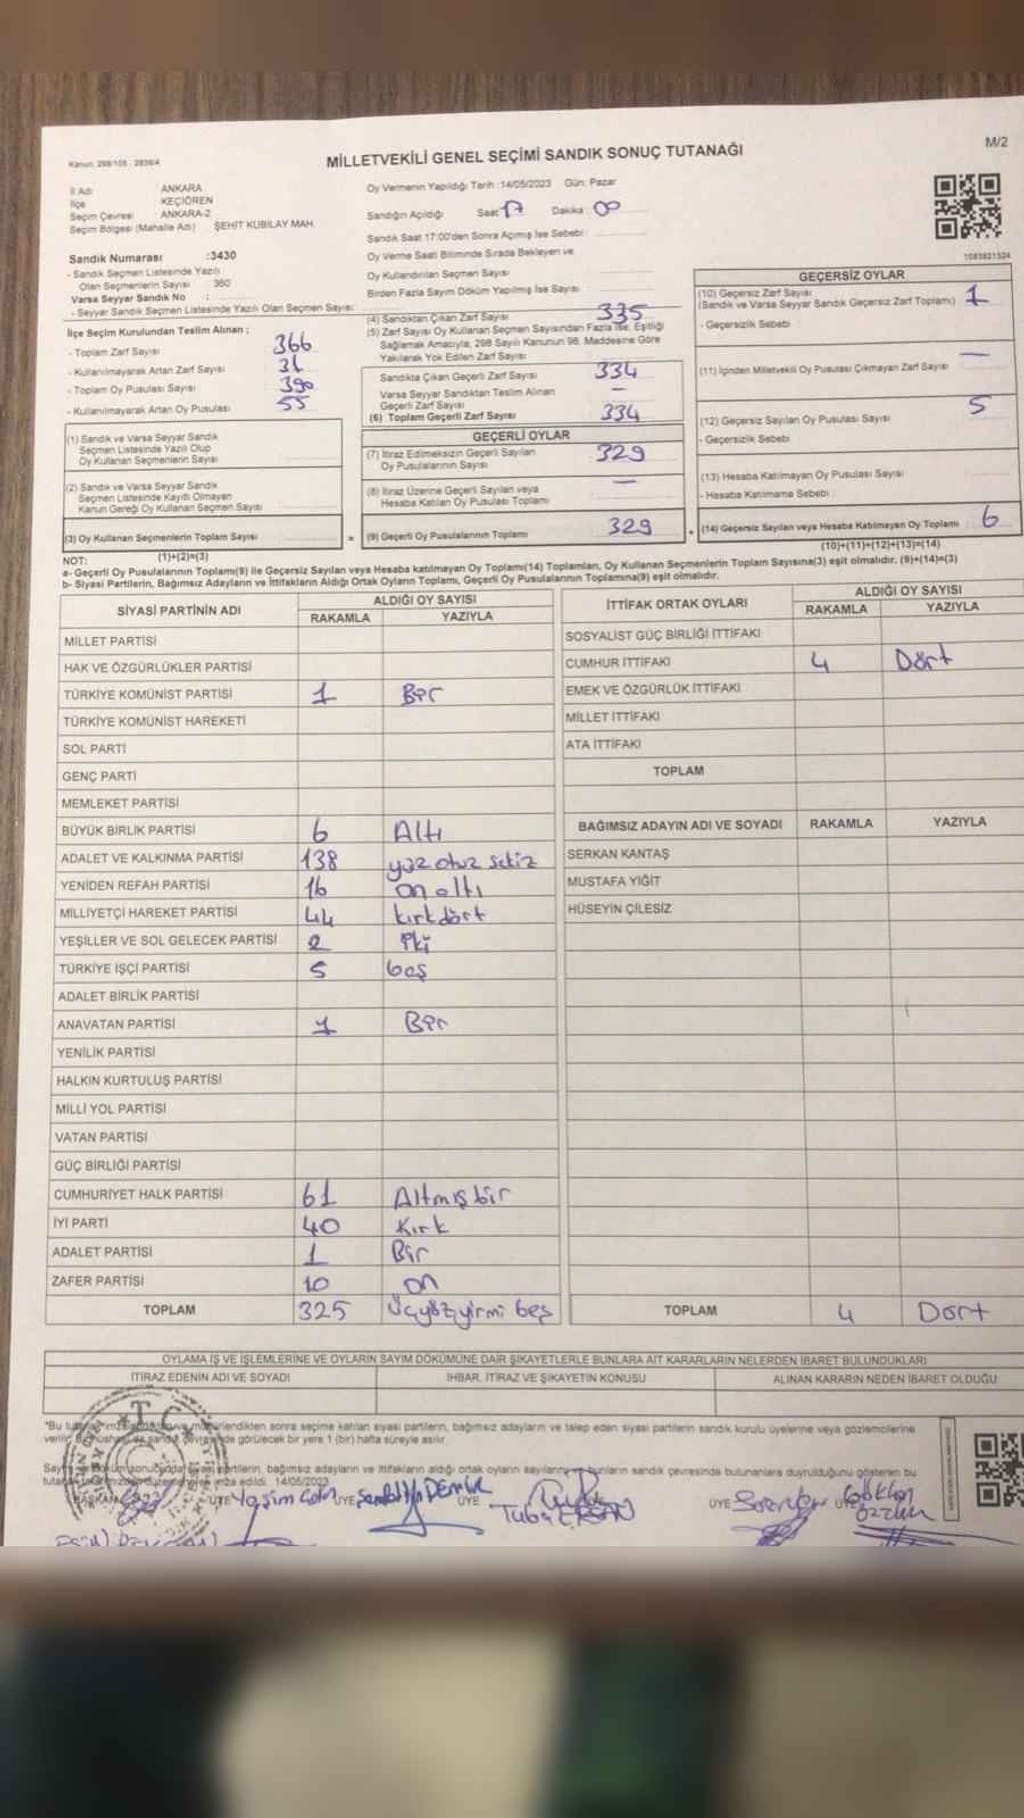 Kanun: 298/105 - 2839/4
MİLLETVEKİLİ GENEL SEÇİMİ SANDIK SONUÇ TUTANAĞI
M/2
İl Adı ANKARA
İlçe KEÇİÖREN
Seçim Çevresi ANKARA-2
Seçim Bölgesi (Mahalle Adı) ŞEHİT KUBİLAY MAH.
Oy Vermenin Yapıldığı Tarih :14/05/2023 Gün: Pazar
Sandığın Açıldığı Saat 17 Dakika 00
Sandık Saat 17:00'den Sonra Açımış İse Sebebi
Oy Verme Saati Bitiminde Sırada Bekleyen ve
Oy Kullandırılan Seçmen Sayısı
Birden Fazla Sayım Döküm Yapılmış İse Sayısı
1083821324
Sandık Numarası :3430
- Sandık Seçmen Listesinde Yazılı
Olan Seçmenlerin Sayısı 360
Varsa Seyyar Sandık No :
- Seyyar Sandık Seçmen Listesinde Yazılı Olan Seçmen Sayısı:
İlçe Seçim Kurulundan Teslim Alınan :
- Toplam Zarf Sayısı 366
- Kullanılmayarak Artan Zarf Sayısı 31
- Toplam Oy Pusulası Sayısı 390
- Kullanılmayarak Artan Oy Pusulası 55
(1) Sandık ve Varsa Seyyar Sandık
Seçmen Listesinde Yazılı Olup
Oy Kullanan Seçmenlerin Sayısı
(2) Sandık ve Varsa Seyyar Sandık
Seçmen Listesinde Kayıtlı Olmayan
Kanun Gereği Oy Kullanan Seçmen Sayısı
(3) Oy Kullanan Seçmenlerin Toplam Sayısı =
(1)+(2)=(3)
(4) Sandıktan Çıkan Zarf Sayısı 335
(5) Zarf Sayısı Oy Kullanan Seçmen Sayısından Fazla İse, Eşitliği
Sağlamak Amacıyla, 298 Sayılı Kanunun 98. Maddesine Göre
Yakılarak Yok Edilen Zarf Sayısı:
Sandıkta Çıkan Geçerli Zarf Sayısı 334
Varsa Seyyar Sandıktan Teslim Alınan
Geçerli Zarf Sayısı —
(6) Toplam Geçerli Zarf Sayısı 334
GEÇERLİ OYLAR
(7) İtiraz Edilmeksizin Geçerli Sayılan
Oy Pusulalarının Sayısı 329
(8) İtiraz Üzerine Geçerli Sayılan veya
Hesaba Katılan Oy Pusulası Toplamı —
(9) Geçerli Oy Pusulalarının Toplamı 329 +
GEÇERSİZ OYLAR
(10) Geçersiz Zarf Sayısı
(Sandık ve Varsa Seyyar Sandık Geçersiz Zarf Toplamı) 1
- Geçersizlik Sebebi
(11) İçinden Milletvekili Oy Pusulası Çıkmayan Zarf Sayısı —
(12) Geçersiz Sayılan Oy Pusulası Sayısı 5
- Geçersizlik Sebebi
(13) Hesaba Katılmayan Oy Pusulası Sayısı
- Hesaba Katılmama Sebebi
(14) Geçersiz Sayılan veya Hesaba Katılmayan Oy Toplamı 6
(10)+(11)+(12)+(13)=(14)
NOT:
a- Geçerli Oy Pusulalarının Toplamı(9) ile Geçersiz Sayılan veya Hesaba katılmayan Oy Toplamı(14) Toplamları, Oy Kullanan Seçmenlerin Toplam Sayısına(3) eşit olmalıdır. (9)+(14)=(3)
b- Siyasi Partilerin, Bağımsız Adayların ve İttifakların Aldığı Ortak Oyların Toplamı, Geçerli Oy Pusulalarının Toplamına(9) eşit olmalıdır.
SİYASİ PARTİNİN ADI ALDIĞI OY SAYISI
RAKAMLA YAZIYLA
MİLLET PARTİSİ
HAK VE ÖZGÜRLÜKLER PARTİSİ
TÜRKİYE KOMÜNİST PARTİSİ 1 Bir
TÜRKİYE KOMÜNİST HAREKETİ
SOL PARTİ
GENÇ PARTİ
MEMLEKET PARTİSİ
BÜYÜK BİRLİK PARTİSİ 6 Altı
ADALET VE KALKINMA PARTİSİ 138 yüz otuz sekiz
YENİDEN REFAH PARTİSİ 16 on altı
MİLLİYETÇİ HAREKET PARTİSİ 44 kırkdört
YEŞİLLER VE SOL GELECEK PARTİSİ 2 iki
TÜRKİYE İŞÇİ PARTİSİ 5 beş
ADALET BİRLİK PARTİSİ
ANAVATAN PARTİSİ 1 Bir
YENİLİK PARTİSİ
HALKIN KURTULUŞ PARTİSİ
MİLLİ YOL PARTİSİ
VATAN PARTİSİ
GÜÇ BİRLİĞİ PARTİSİ
CUMHURİYET HALK PARTİSİ 61 Altmışbir
İYİ PARTİ 40 Kırk
ADALET PARTİSİ 1 Bir
ZAFER PARTİSİ 10 on
TOPLAM 325 Üçyüzyirmi beş
İTTİFAK ORTAK OYLARI ALDIĞI OY SAYISI
RAKAMLA YAZIYLA
SOSYALİST GÜÇ BİRLİĞİ İTTİFAKI
CUMHUR İTTİFAKI 4 Dört
EMEK VE ÖZGÜRLÜK İTTİFAKI
MİLLET İTTİFAKI
ATA İTTİFAKI
TOPLAM
BAĞIMSIZ ADAYIN ADI VE SOYADI RAKAMLA YAZIYLA
SERKAN KANTAŞ
MUSTAFA YİĞİT
HÜSEYİN ÇİLESİZ
TOPLAM 4 Dört
OYLAMA İŞ VE İŞLEMLERİNE VE OYLARIN SAYIM DÖKÜMÜNE DAİR ŞİKAYETLERLE BUNLARA AİT KARARLARIN NELERDEN İBARET BULUNDUKLARI
İTİRAZ EDENİN ADI VE SOYADI İHBAR, İTİRAZ VE ŞİKAYETİN KONUSU ALINAN KARARIN NEDEN İBARET OLDUĞU
*Bu sonra seçime katılan siyasi partilerin, bağımsız adayların ve talep eden siyasi partilerin sandık kurulu üyelerine veya gözlemcilerine
verilir. görülecek bir yere 1 (bir) hafta süreyle asılır.
bağımsız adayların ve ittifakların aldığı ortak oyların sandık çevresinde bulunanlara duyurulduğunu gösteren bu
imza edildi. 14/05/2023
T.C.
BAŞKAN ÜYE ÜYE ÜYE ÜYE ÜYE
Tuba